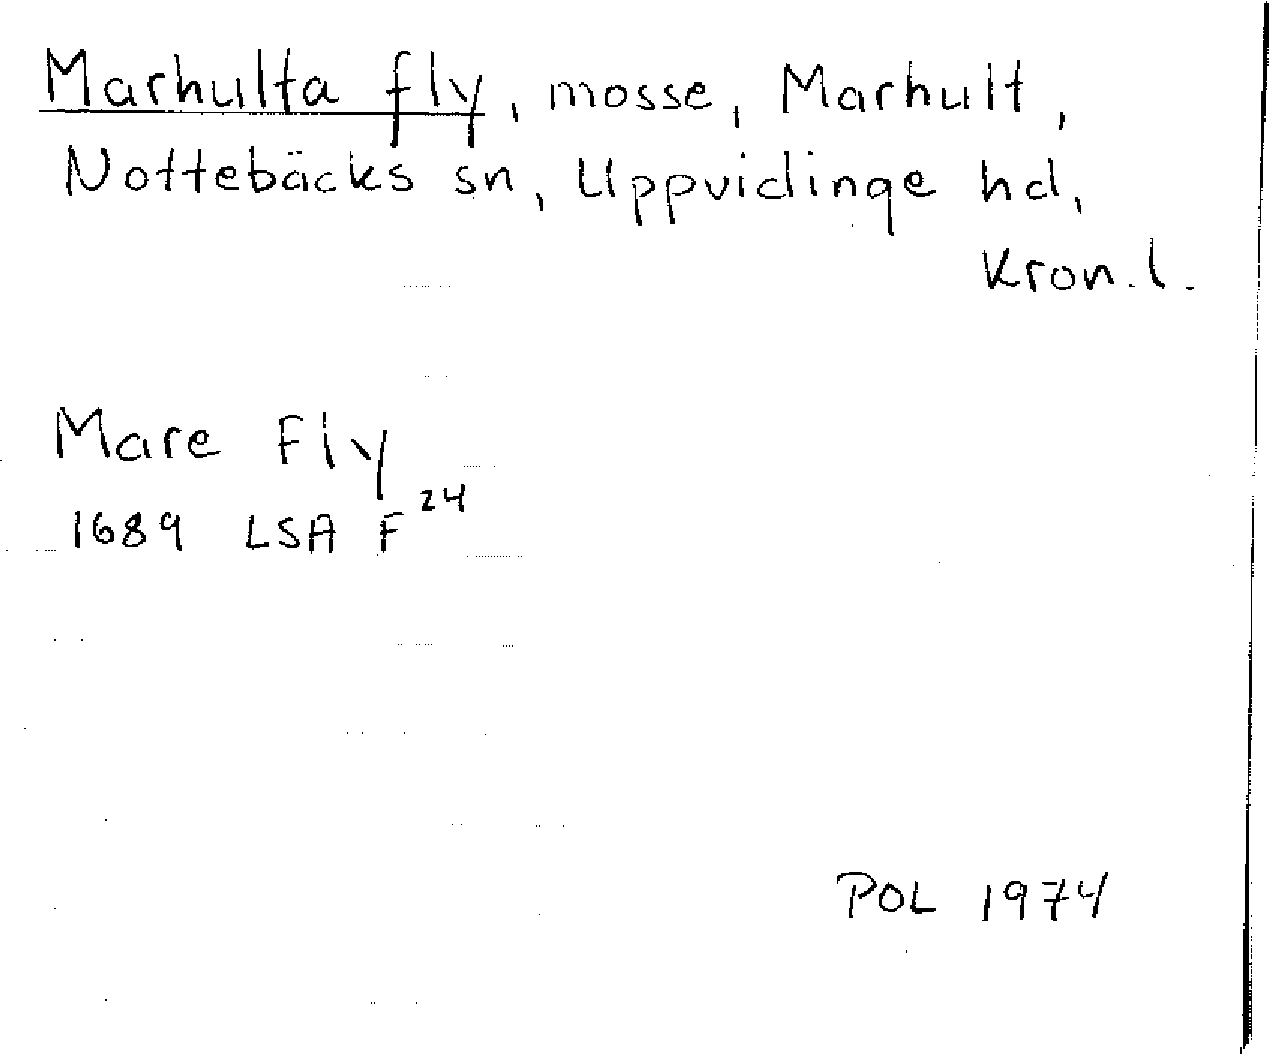 Marhulta fly, mosse, Marhult,
Nottebäcks sn, Uppvidinge hd,
Kron. l.
Mare Fly
1689 LSA F 24
POL 1974